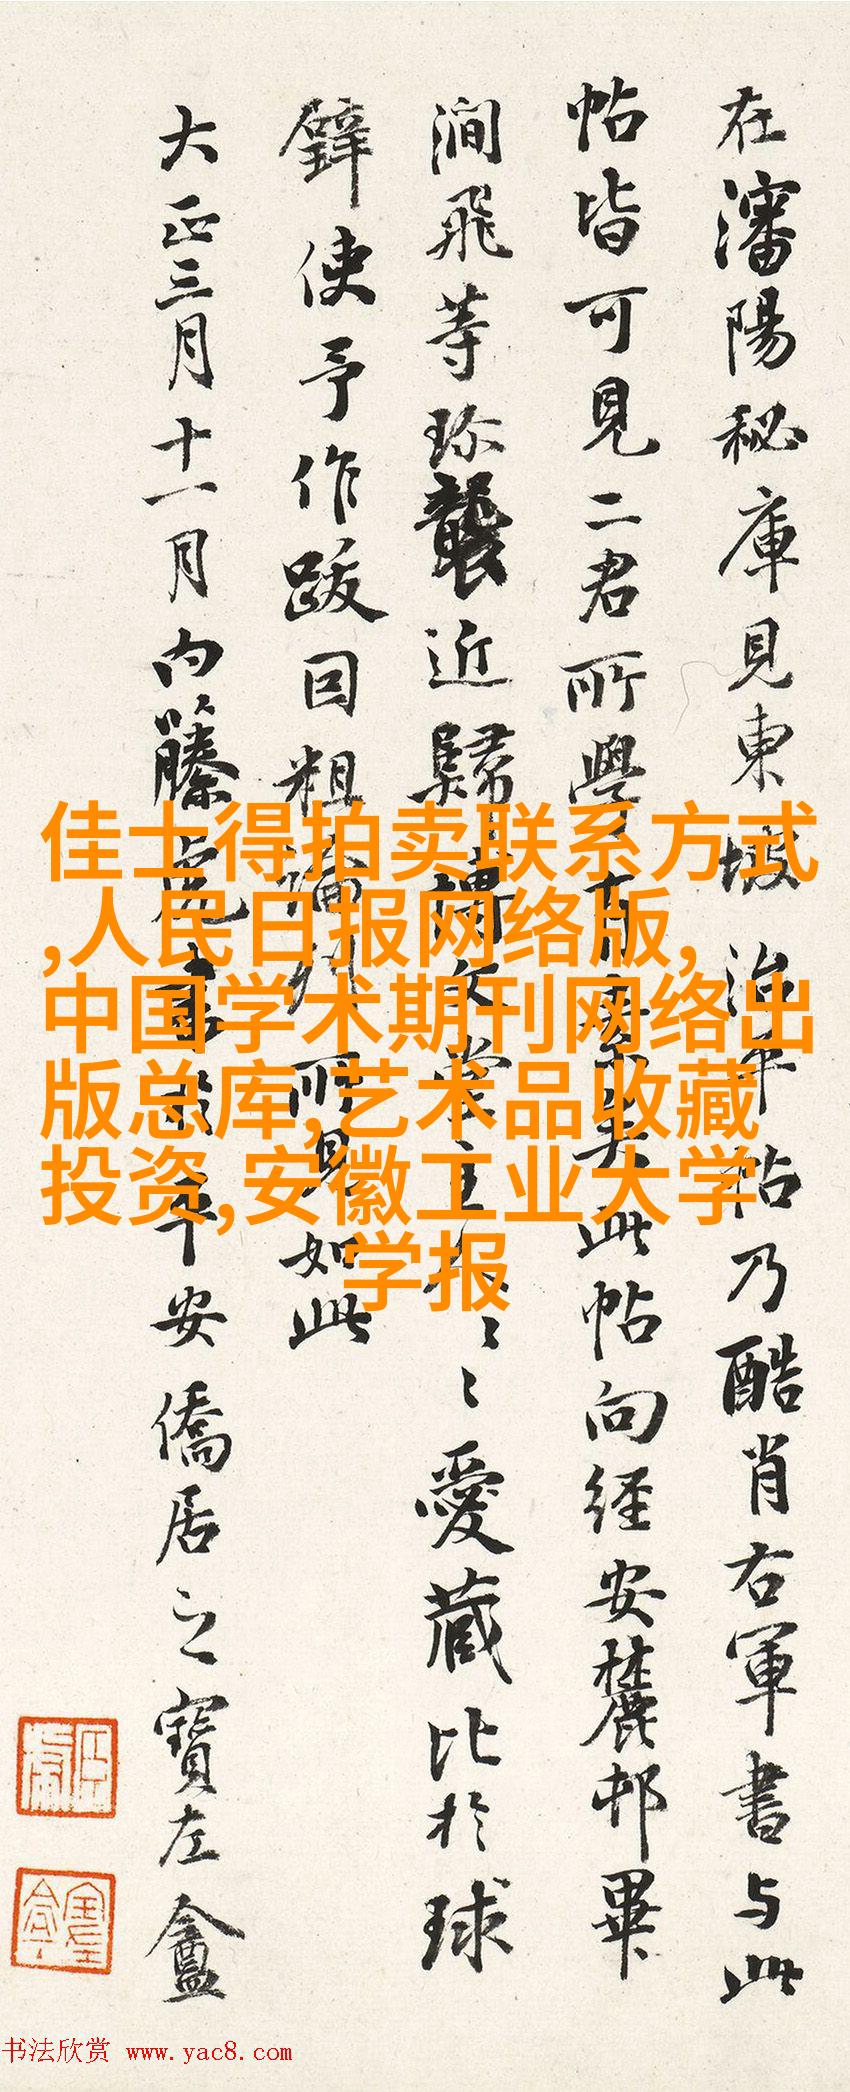 在瀋陽秘庫見東坡治平帖乃酷肖右軍書与此
帖皆可見二君所學有素矣此帖向經安麓邨畢
澗飛等珍襲近歸博文堂主
愛藏比於球
鐸使予作跋因粗論列所見如此
大正三月十一月内藤虎書於平安僑居之寶左盦
佳士得拍卖联系方式
,人民日报网络版,
中国学术期刊网络出
版总库,艺术品收藏
投资,安徽工业大学
学报
书法欣赏 www.yac8.com